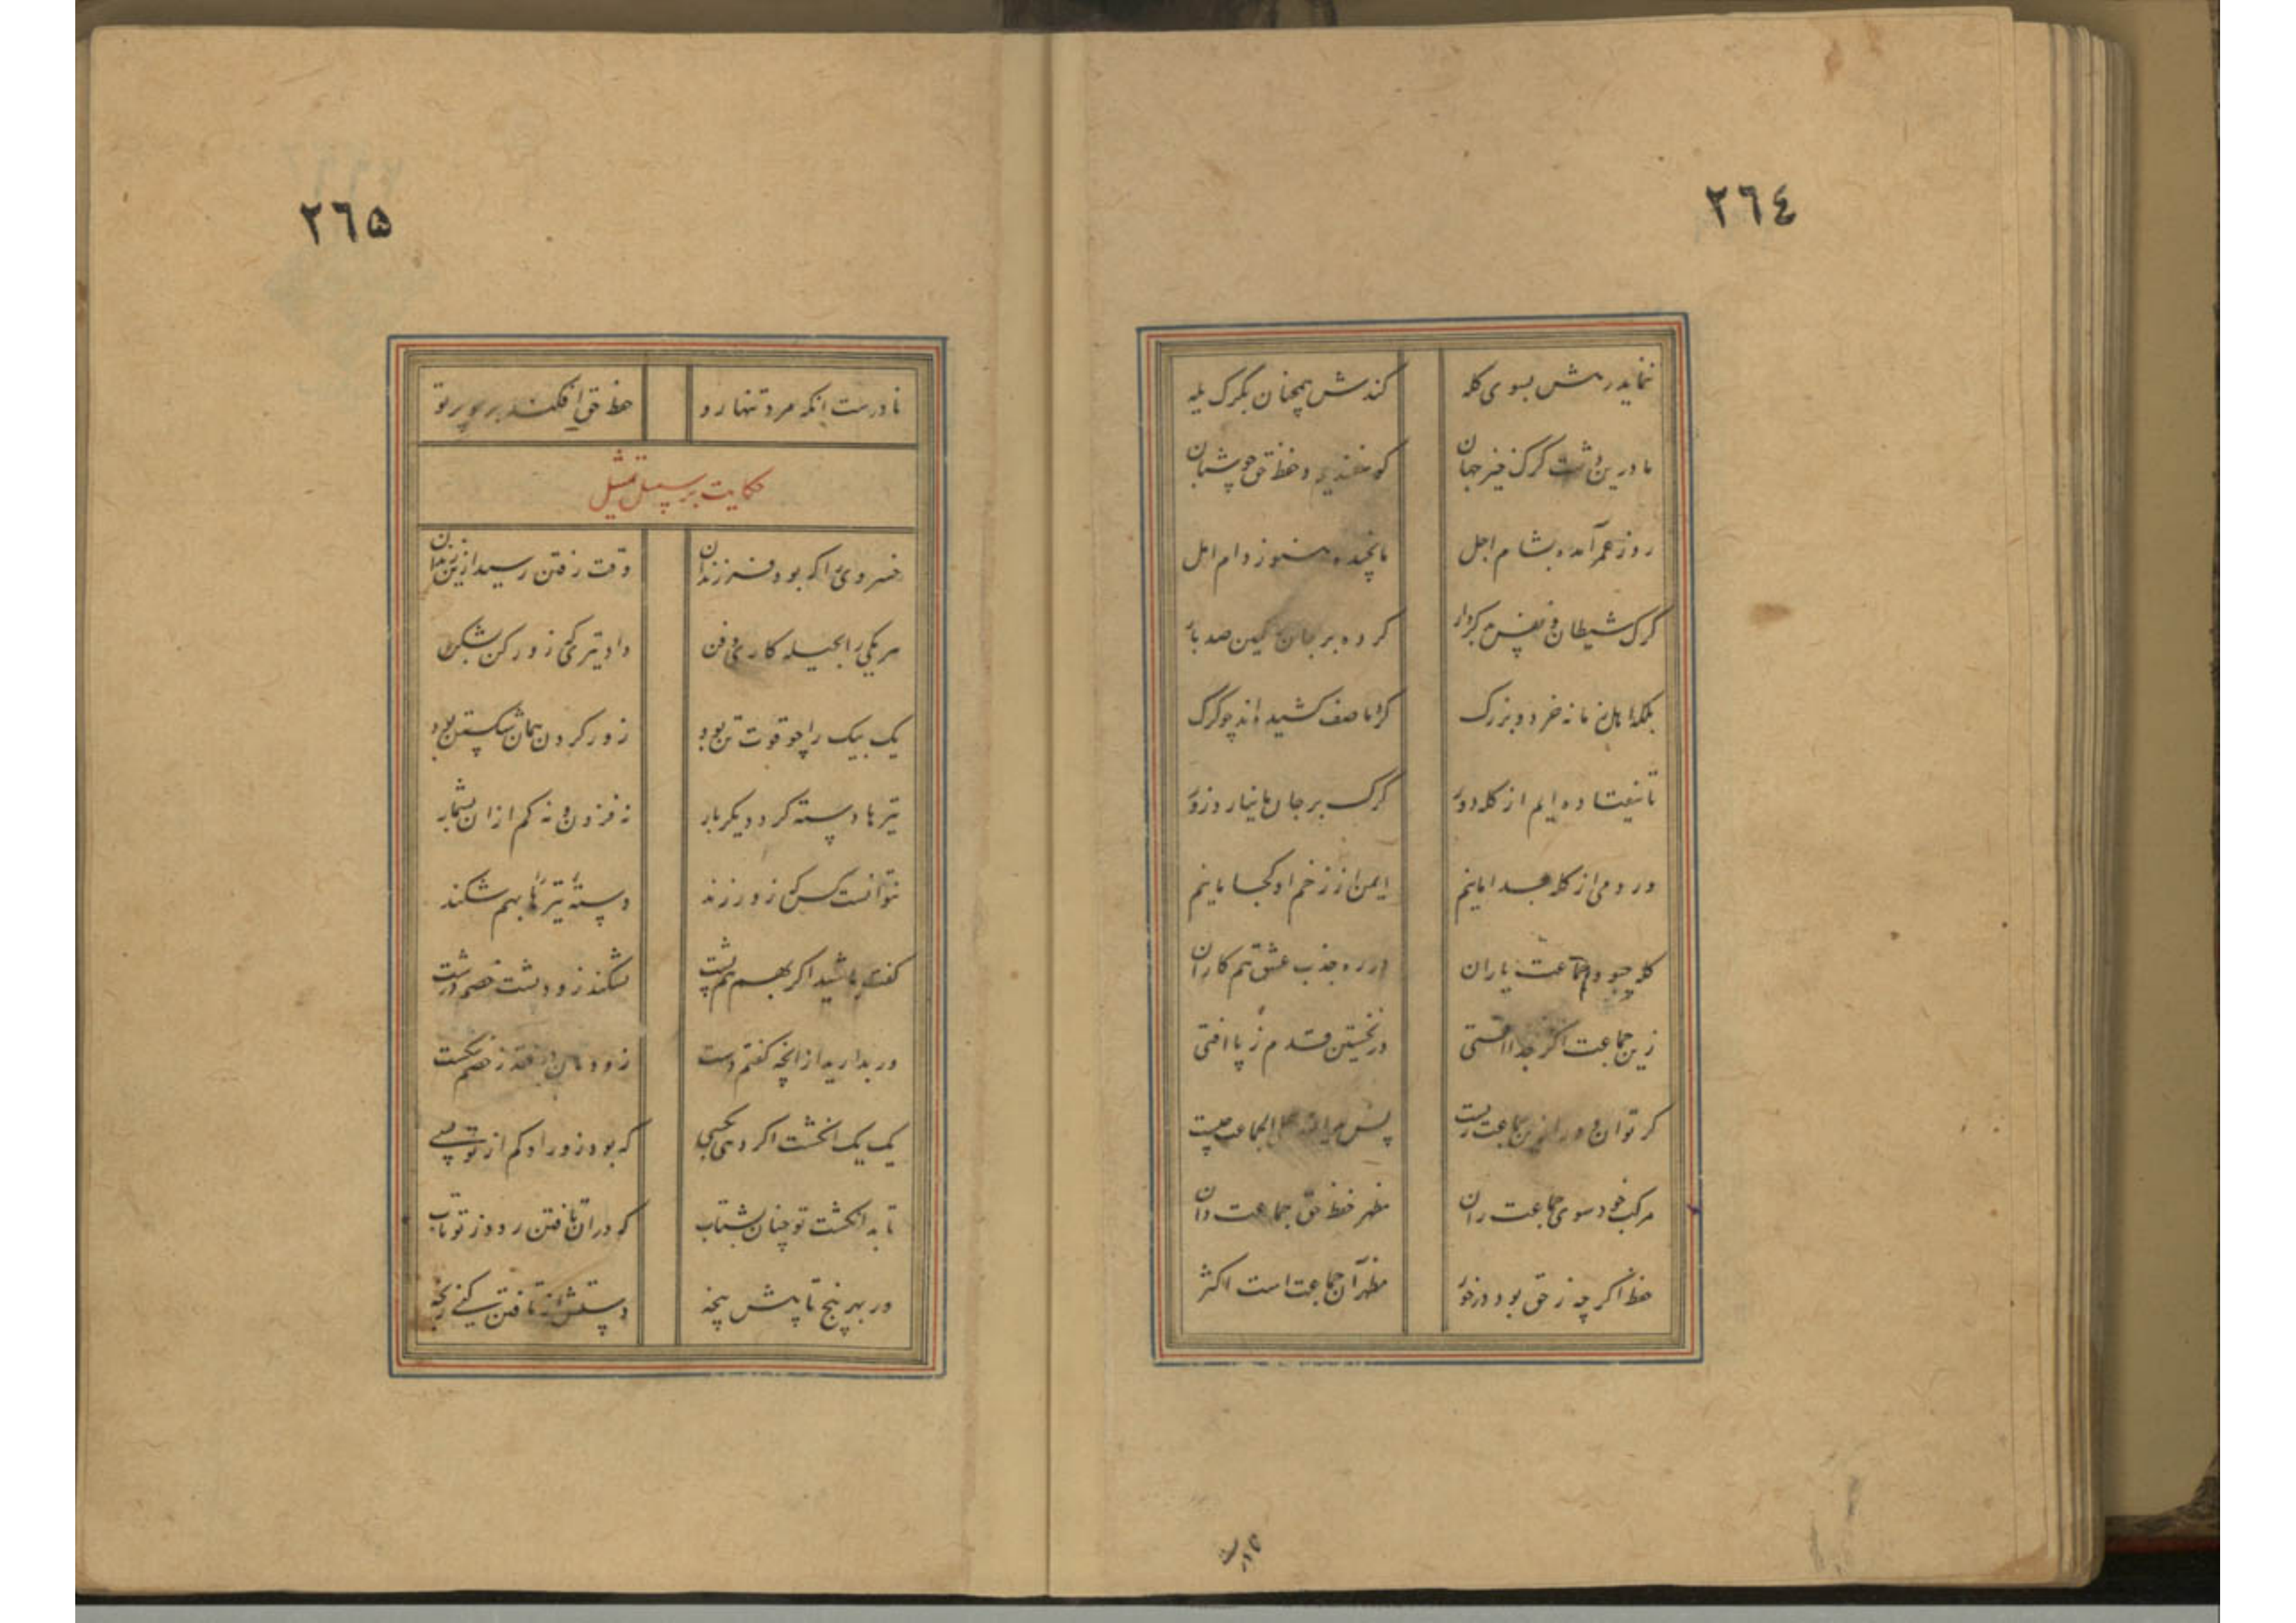 ٢٦٤
نماید رمش بسوی کله
کندش همچنان بگرک یله
ما درین دشت گرگ خیز جهان
کوسفندیم و حفظ حق جو شبان
روز عمر آمده بشام اجل
ما نچیده هنوز دام امل
گرگ شیطان و نفس بدکردار
کرده بر جان کمین صد بار
بلکه ابنای زمانه خرد و بزرگ
گرد ما صف کشیده اند چو گرگ
تا نیفتاده ایم از کله دور
گرگ بر جان ما نیارد زور
ور دمی از کله جدا مانیم
ایمن از زخم او کجا مانیم
کله چبود جماعت یاران
در ره جذب عشق هم کاران
زین جماعت اگر جدا افتی
در نخستین قدم ز پا افتی
کر توان دور ازین جماعت زیست
پس یدالله علی الجماعه چیست
مرکب خود سوی جماعت ران
مظهر حفظ حق جماعت دان
حفظ اگر چه ز حق بود در خور
مظهر آن جماعت است اکثر
٢٦٥
نادرست انکه مرد تنها رو
حفظ حق افکند برو پرتو
حکایت بر سبیل تمثیل
خسروی را که بود فرزندان
وقت رفتن رسید ازین زندان
هر یکی را بحیله کاری و فن
داد تیری که زور کن بشکن
یک بیک را چو قوت تن بود
زور کردن همان شکستن بود
تیرها دسته کرد دیکر بار
نه فزون و نه کم ازان بشمار
نتوانست کس که زور زند
دسته تیرها بهم شکند
کفت باشید اگر بهم هم پشت
بشکند زود پشت خصم درشت
ور بدارید ازانچه کفتم دست
زودتان اوفتد ز خصم شکست
یک یک انکشت اگر دهی بکسی
که بود زور او کم از تو بسی
تابد انکشت تو چنان بشتاب
که دران تافتن رود ز تو تاب
ور بهر پنج تابیش پنجه
دستش از تافتن کنی رنجه